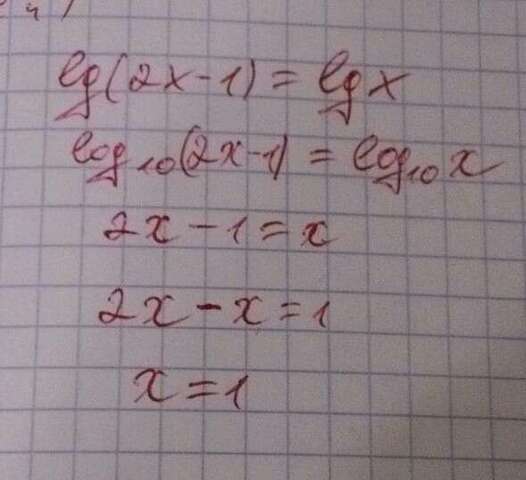 lg(2x-1)=lgx
log₁₀(2x-1)=log₁₀x
2x-1=x
2x-x=1
x=1